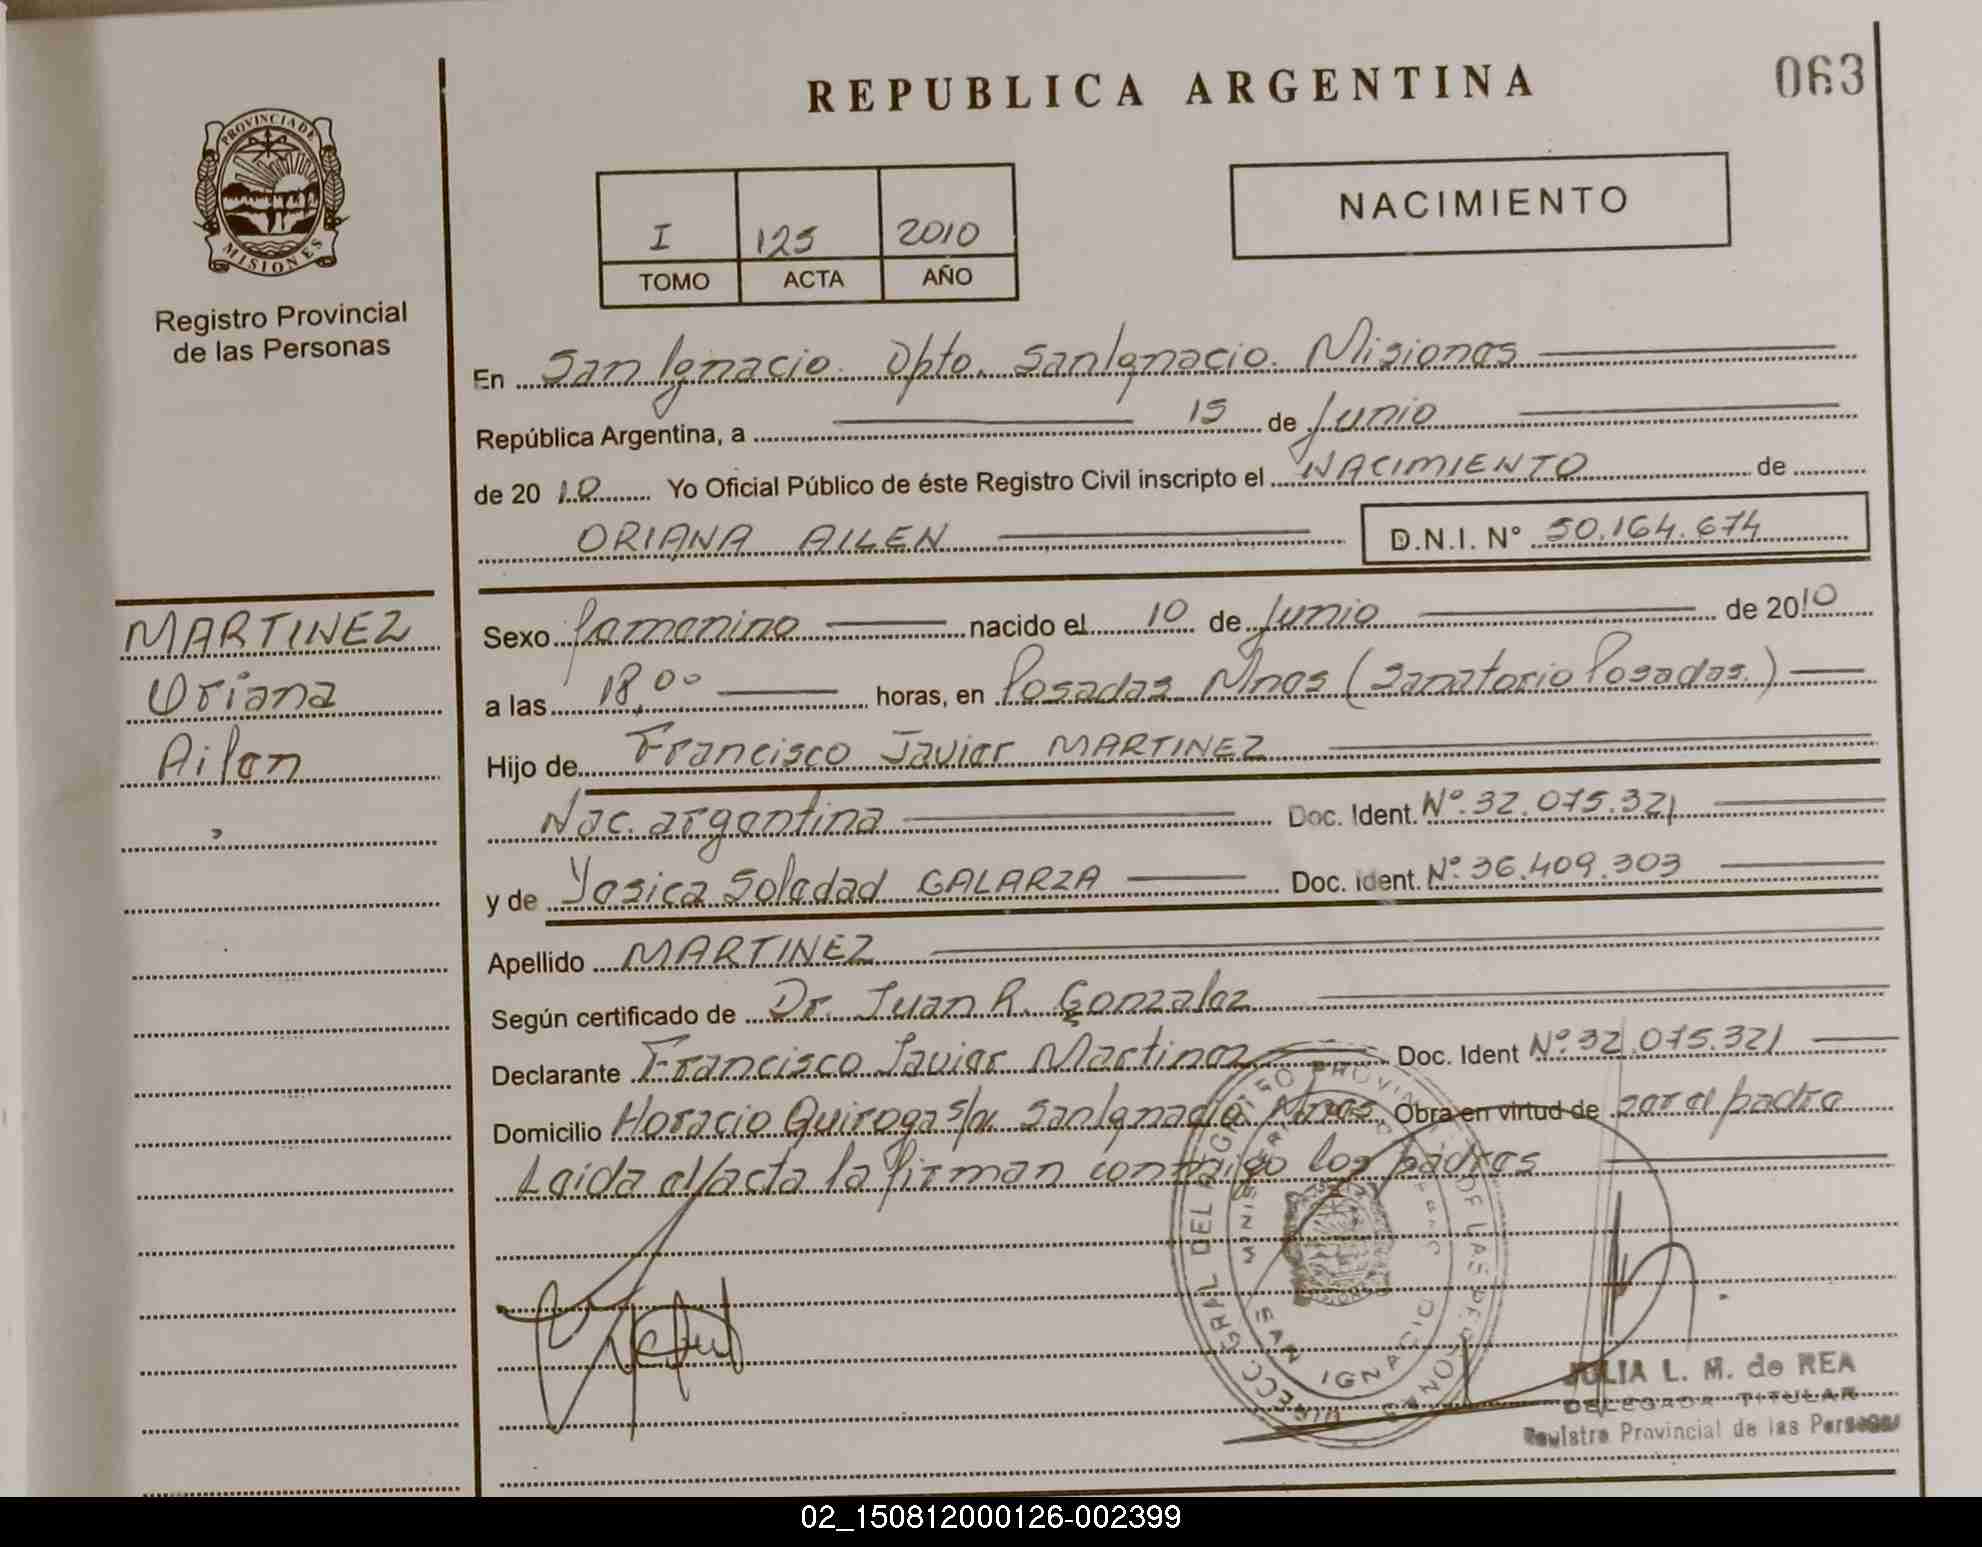 REPUBLICA ARGENTINA
063
PROVINCIA DE
MISIONES
Registro Provincial
de las Personas
I 125 2010
TOMO ACTA AÑO
NACIMIENTO
En San Ignacio. Dpto. San Ignacio. Misiones
República Argentina, a 15 de Junio
de 2010 Yo Oficial Público de éste Registro Civil inscripto el NACIMIENTO de
ORIANA AILEN D.N.I. Nº 50.164.674
MARTINEZ
Oriana
Ailen
Sexo femenino nacido el 10 de Junio de 2010
a las 18,00 horas, en Posadas Mnes (Sanatorio Posadas.)
Hijo de Francisco Javier MARTINEZ
Nac. argentina Doc. Ident. Nº.32.075.321
y de Yesica Soledad GALARZA Doc. Ident. Nº.36.409.303
Apellido MARTINEZ
Según certificado de Dr. Juan R. Gonzalez
Declarante Francisco Javier Martinez Doc. Ident Nº.32.075.321
Domicilio Horacio Quiroga s/n. San Ignacio. Mnes. Obra en virtud de ser el padre
Leida el acta la firman conmigo los padres
DIRECC GRAL DEL REGISTRO PROVINCIAL DE LAS PERSONAS
SAN IGNACIO
JULIA L. M. de REA
DELEGADA TITULAR
Registro Provincial de las Personas
02_150812000126-002399